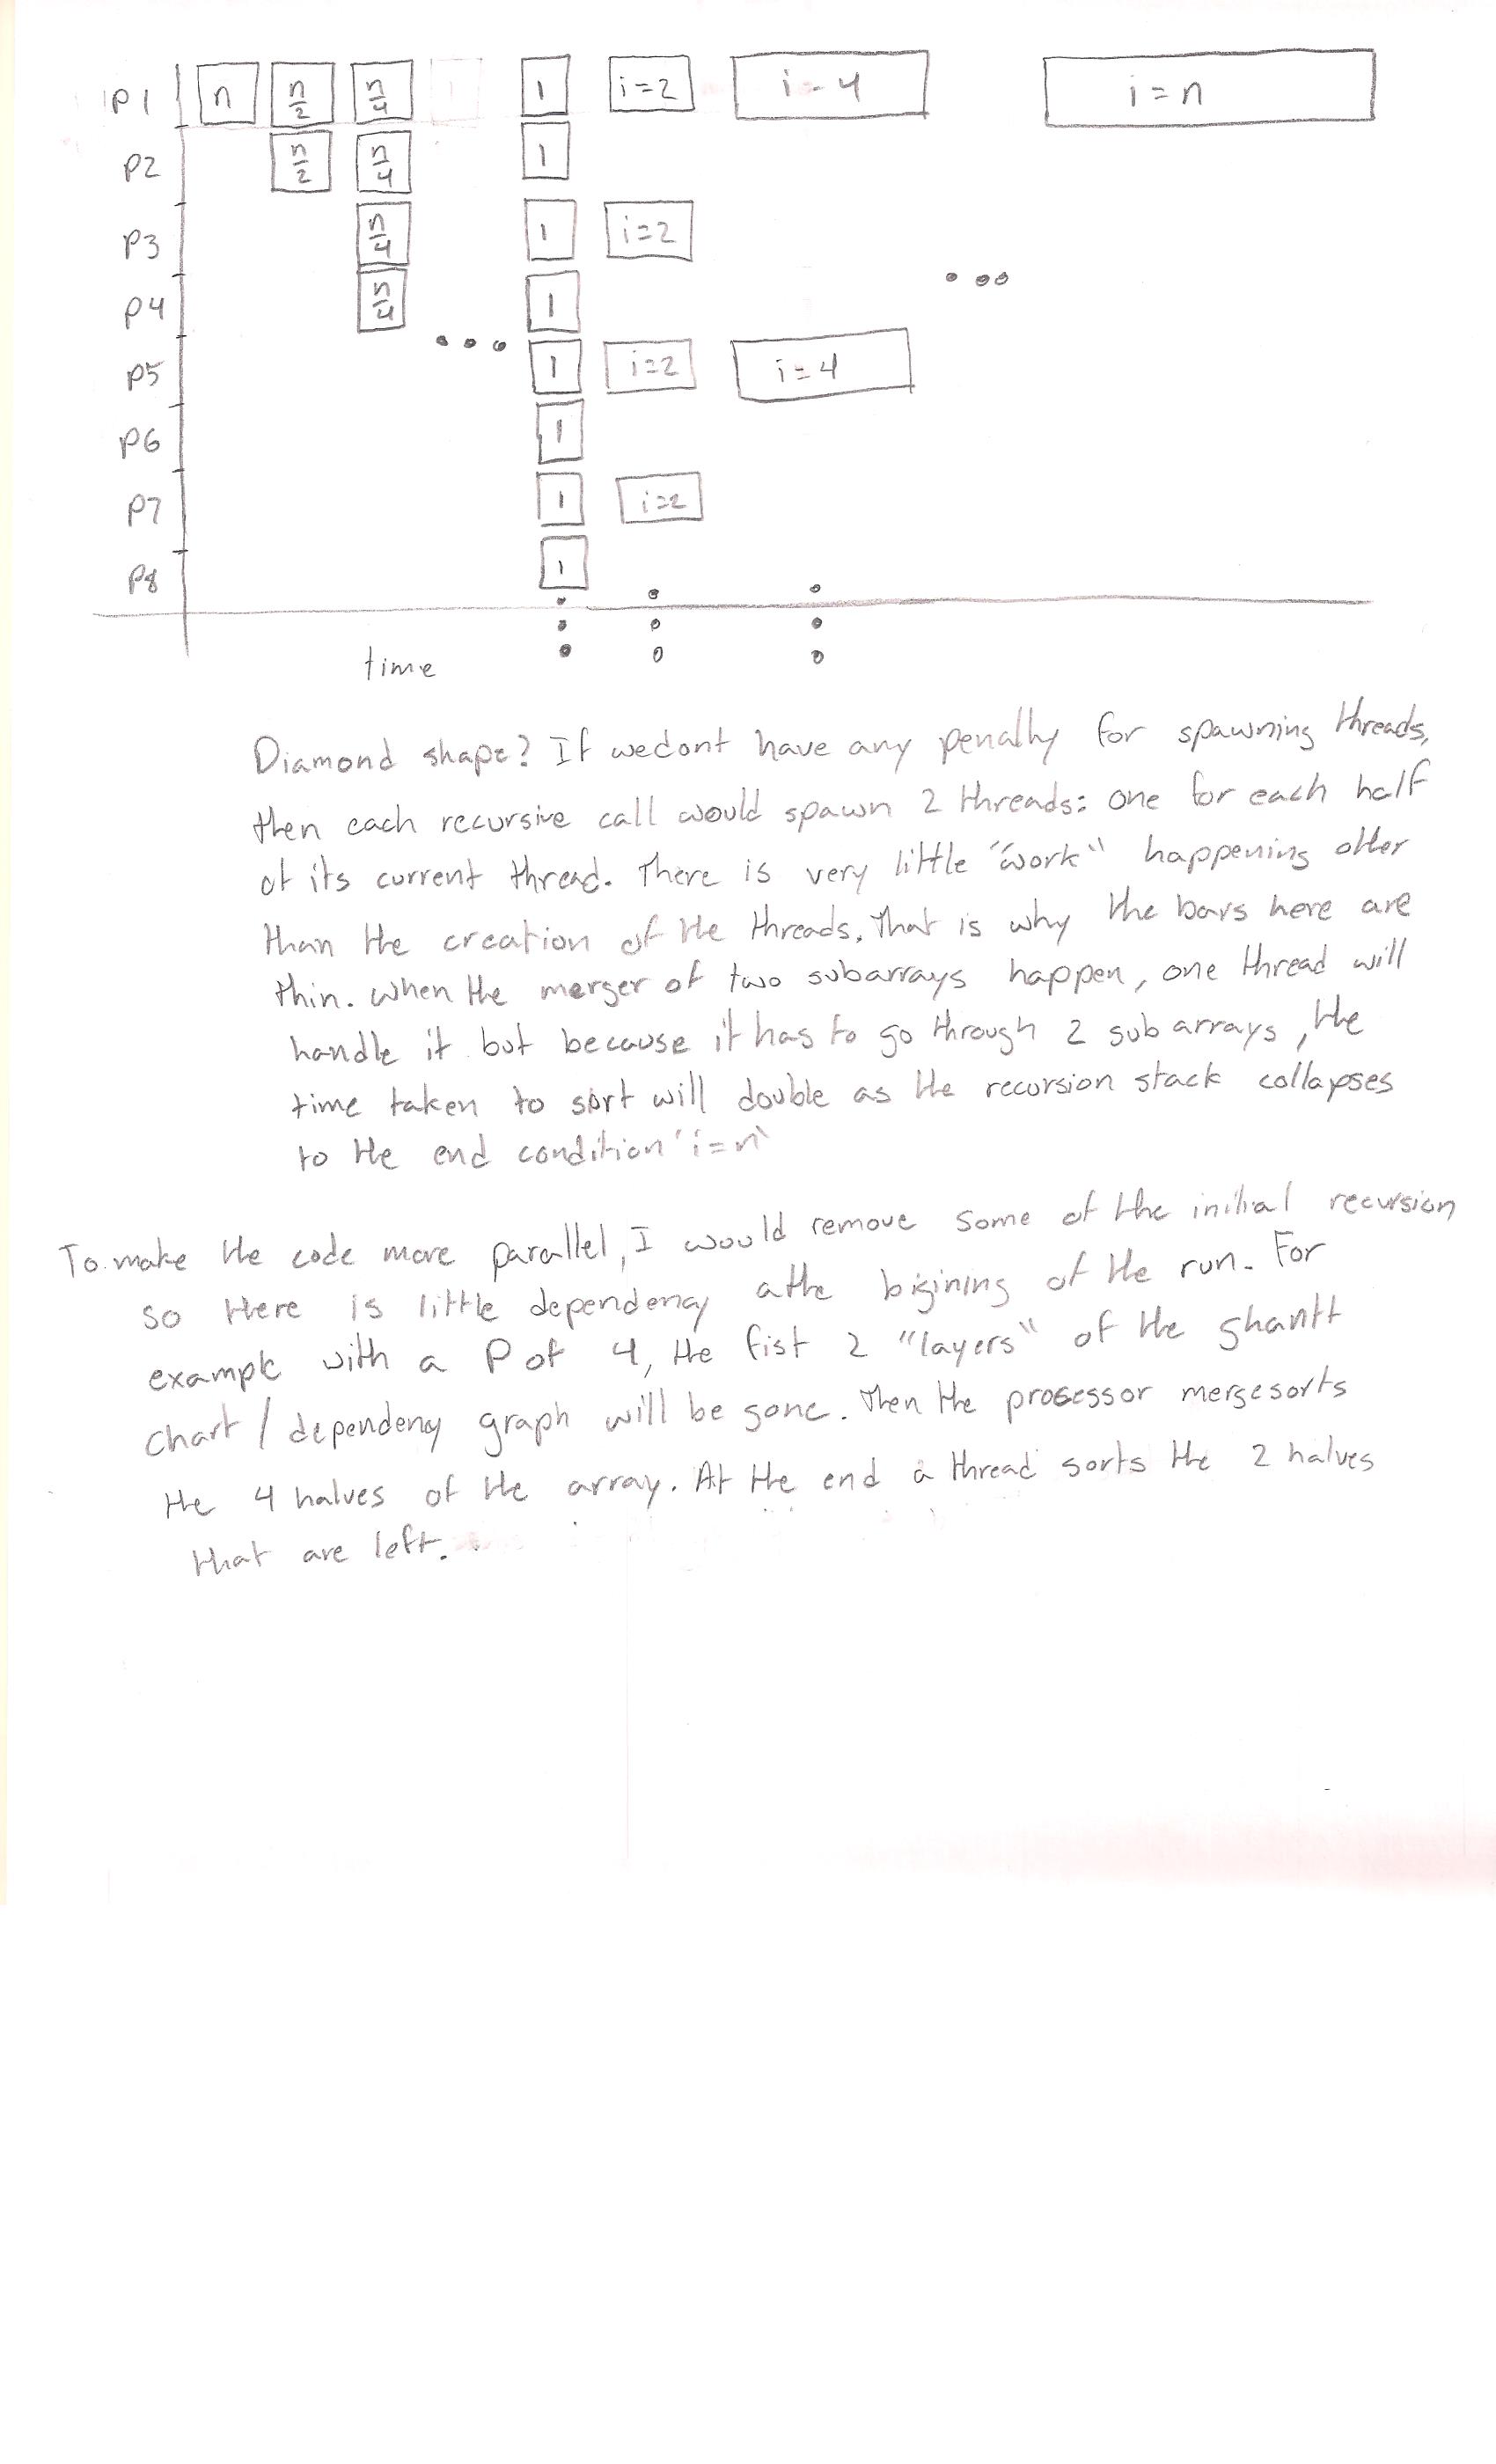 P1 n n/2 n/4 1 i=2 i=4 i=n
P2 n/2 n/4 1
P3 n/4 1 i=2
P4 n/4 1
P5 1 i=2 i=4
P6 1
P7 1 i=2
P8 1
time
Diamond shape? If we dont have any penalty for spawning threads,
then each recursive call would spawn 2 threads: one for each half
of its current thread. There is very little "work" happening other
than the creation of the threads. That is why the bars here are
thin. when the merger of two subarrays happen, one thread will
handle it but because it has to go through 2 sub arrays, the
time taken to sort will double as the recursion stack collapses
to the end condition 'i=n'
To make the code more parallel, I would remove some of the initial recursion
so there is little dependency athe bigining of the run. For
example with a P of 4, the fist 2 "layers" of the ghantt
chart / dependency graph will be gone. Then the processor mergesorts
the 4 halves of the array. At the end a thread sorts the 2 halves
that are left.